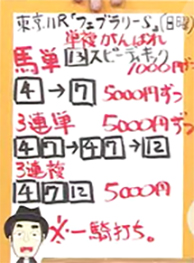 東京11R『フェブラリーS』(日曜)
単複がんばれ
馬単 13 スピーディキック
1000円ずつ
4→7 5000円ずつ
3連単
4 7→4 7→12
3連複
4 7 12 5000円
※一騎打ち。